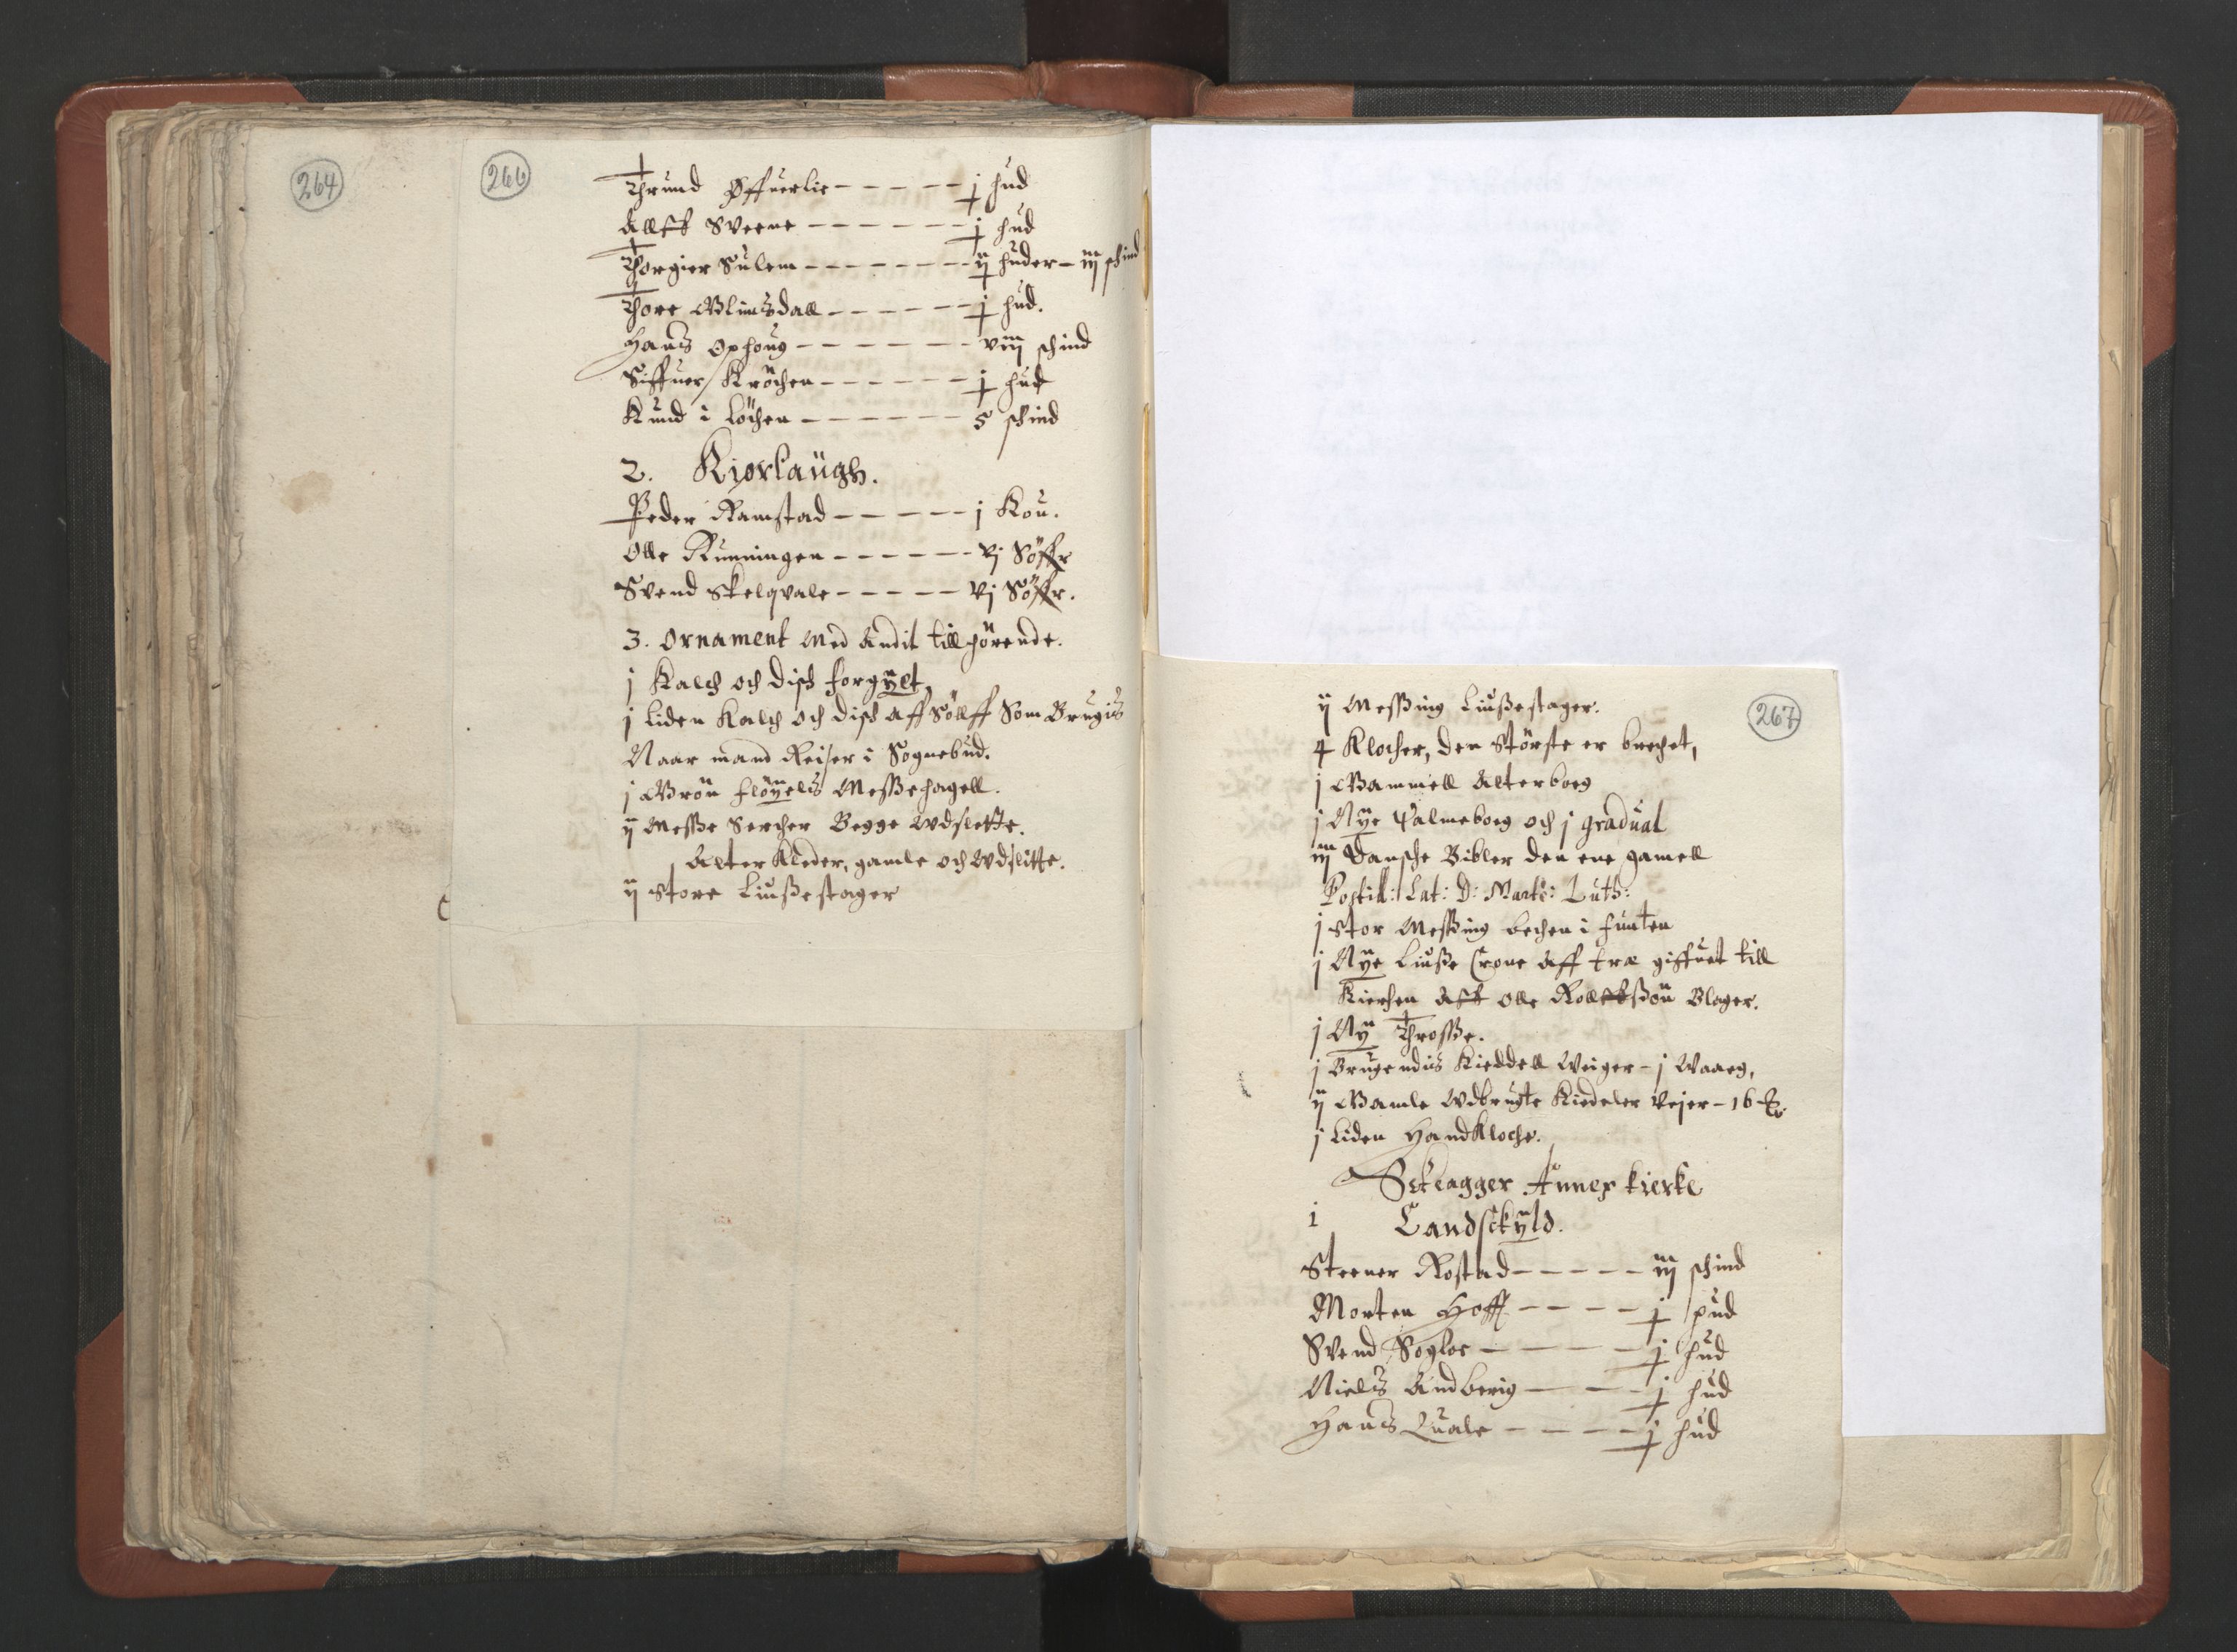 264
266
Thrund Øffuerlie - - - - - j hud
Allff Sveene - - - - - - j hud
Thorgier Sulem - - - - - - - ij huder - iij schind
Thore Glimsdall - - - - - - j hud.
Hans Ophoug - - - - - - viij schind
Siffuer Kröchen - - - - - - j hud
Knud i Löchen - - - - - - 5 schind
2. Kiørlaugh.
Peder Ramstad - - - - - j Kou.
Olle Kunningen - - - - - - vj Söffr
Svend Skelqvale - - - - - vj Söffr.
3. Ornament Med Andit tillhörende.
j Kalch och disch forgylt,
j liden Kalch och disch aff Sölff Som Brugis
Naar mand Reiser i Sognebud.
j Grön flöyels Messehagell.
ij Messe Sercher Begge Wdslette.
Alter Kleder, gamle och Wdslitte.
ij Store Liussestager
267
ij Messing Liussestager.
4 Klocher, den Störste er brechet,
j Gammell Alterbog
j Nye Psalmebog och j gradual
iij Dansche Bibler den ene gamell
Postill: Lat: D: Marti: Luth:
j Stor Messing bechen i funten
j Nye Liusse Crone Aff træ giffuet till
Kierchen Aff Olle Rollffssön Blager.
j Ny Throsse.
j Brugendis Kieddell Weiger - j Waaeg,
ij Gamle Wdbrugte Kiedeler Vejer - 16 ℔.
j Liden Handkloche.
Setragger Annex kierke
1 Landsckyld.
Steener Rostad - - - - - iij schind
Morten Hoff - - - - j pud
Svend Sogloe - - - - - j hud
Niels Andberig - - - j hud
Hans Quale - - - - j hud